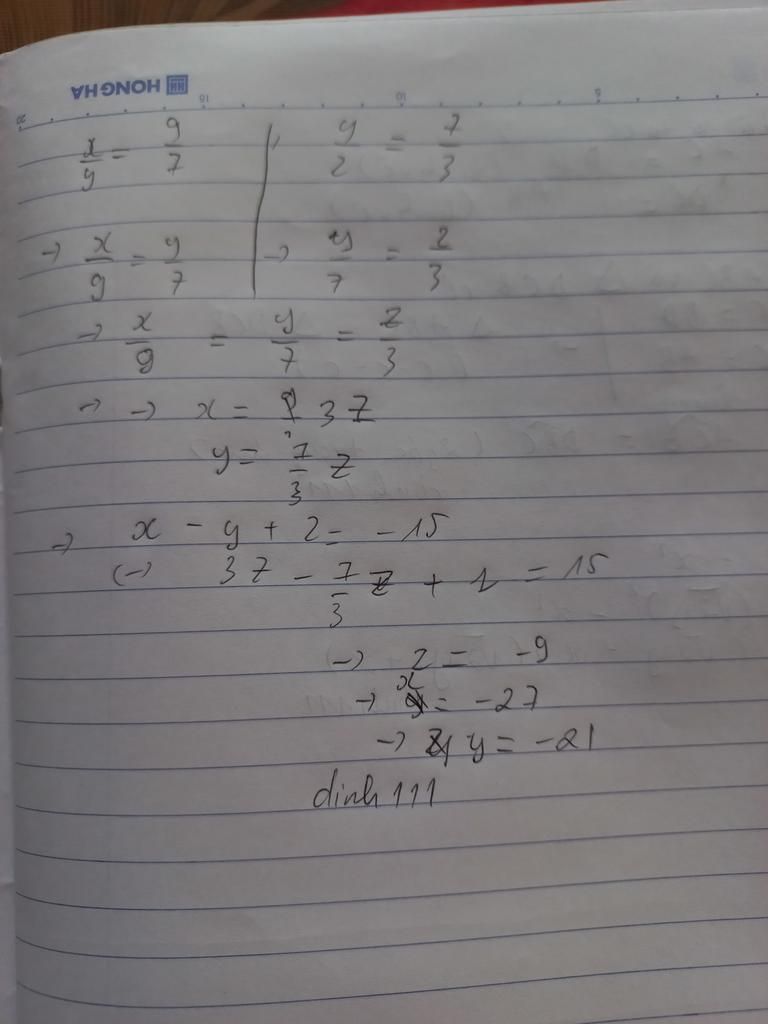 HONG HA
20 15 10 5
x/y = 9/7 | y/z = 7/3
→ x/9 = y/7 | → y/7 = z/3
→ x/9 = y/7 = z/3
→ → x = 3z
y = 7/3 z
→ x - y + z = -15
(→ 3z - 7/3 z + z = 15
→ z = -9
→ x = -27
→ y = -21
dinh 111